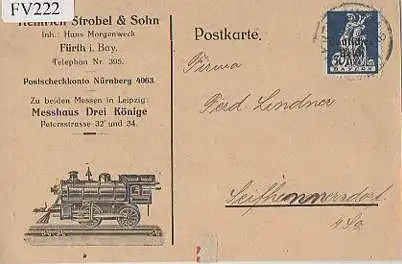 FV222
Heinrich Strobel & Sohn
Inh.: Hans Morgenweck
Fürth i. Bay.
Telephon Nr. 395.
Postscheckkonto Nürnberg 4063.
Zu beiden Messen in Leipzig:
Messhaus Drei Könige
Petersstrasse 32 und 34.
Postkarte.
Firma
Ferd. Lindner
Seifhennersdorf
a/Sa.